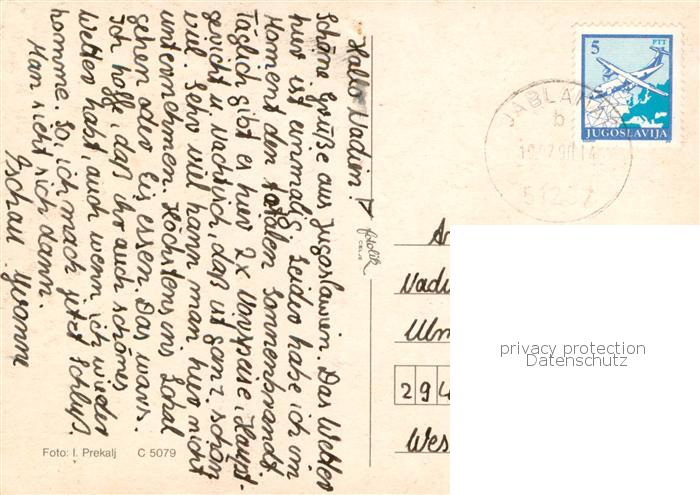 Hallo Vadim!
Schöne Grüße aus Jugoslawien. Das Wetter
hier ist einmalig. Leider habe ich im
Moment den totalen Sonnenbrand.
Täglich gibt es hier 2x Vorspeise, Haupt-
gericht u. Nachtisch, daß ist ganz schön
viel. Sehr viel kann man hier nicht
unternehmen. Höchstens ins Lokal
gehen oder Eis essen. Das wars.
Ich hoffe, daß Ihr auch schönes
Wetter habt, auch wenn ich wieder
komme. So, ich mach jetzt Schluß.
Man sieht sich dann.
Tschau Yvonne
fotolik
Foto: I. Prekalj C 5079
5
PTT
JUGOSLAVIJA
JABLAN
b
51237
An
Vadi
Ulm
294
Wes
privacy protection
Datenschutz